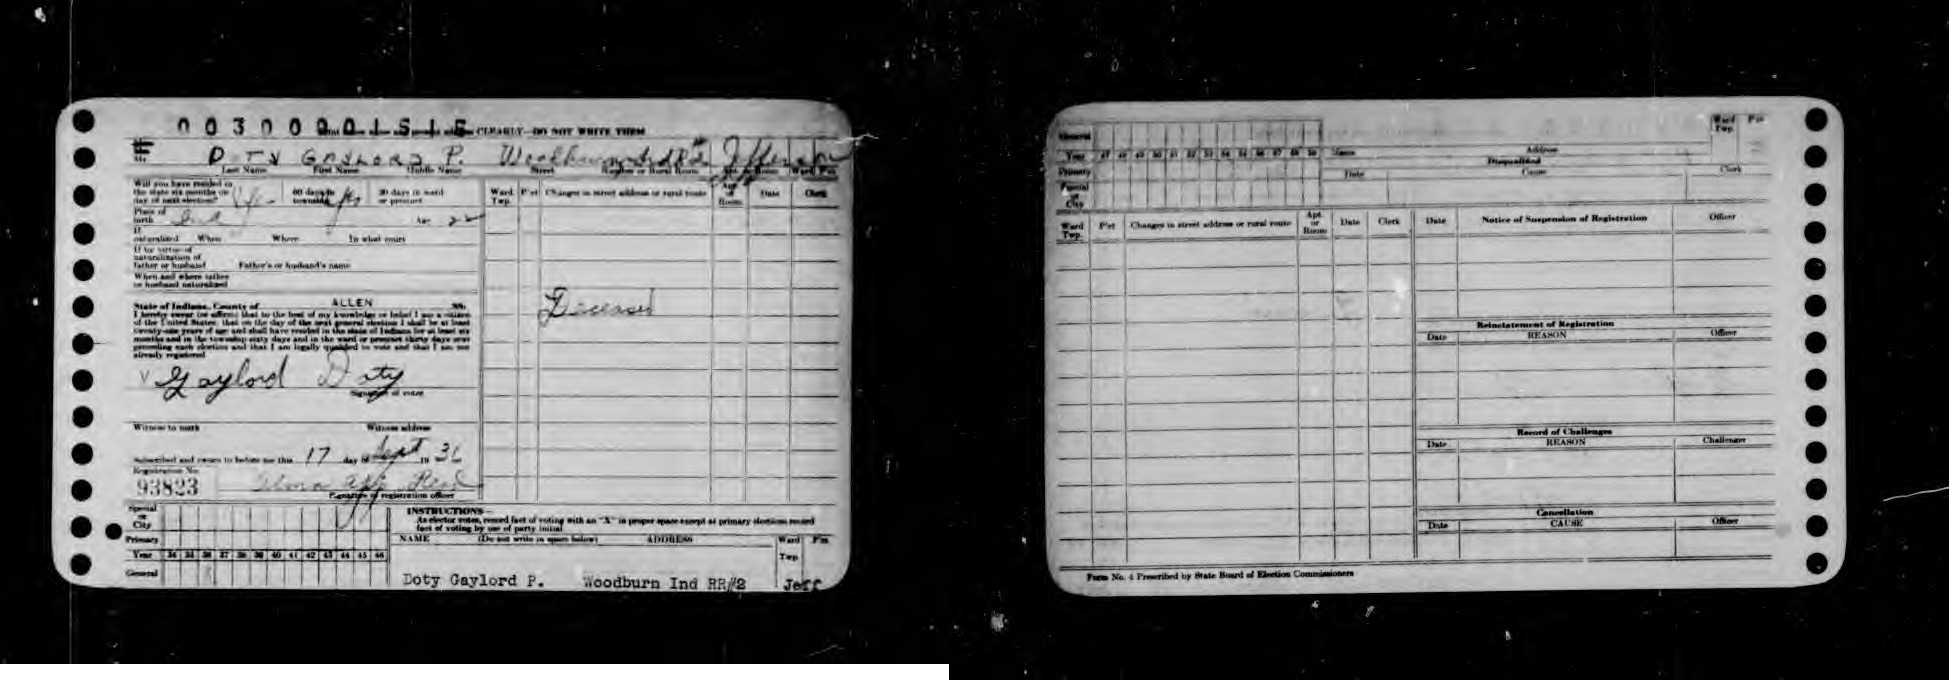 CLEARLY—DO NOT WRITE THEM
Mr. DOTY GAYLORD P. Woodburn Ind R2 Jefferson
Last Name First Name Middle Name Street Number or Rural Route Apt. or Room Ward Pct
Will you have resided in the state six months on day of next election? Yes 60 days in township Yes 30 days in ward or precinct
Place of birth Ind Age 22
If naturalized When Where In what court
If by virtue of naturalization of father or husband Father's or husband's name
When and where father or husband naturalized
State of Indiana, County of ALLEN SS:
I hereby swear (or affirm) that to the best of my knowledge or belief I am a citizen
of the United States, that on the day of the next general election I shall be at least
twenty-one years of age and shall have resided in the state of Indiana for at least six
months and in the township sixty days and in the ward or precinct thirty days next
preceding such election and that I am legally qualified to vote and that I am not
already registered
Gaylord Doty
Signature of voter
Witness to mark Witness address
Subscribed and sworn to before me this 17 day of Sept 19 36
Registration No.
93823
Signature of registration officer
Ward Twp. P'ct Changes in street address or rural route Apt. or Room Date Clerk
Deceased
Special or City
Primary
Year 34 35 36 37 38 39 40 41 42 43 44 45 46
General
INSTRUCTIONS—
As elector votes, record fact of voting with an "X" in proper space except at primary elections record
fact of voting by use of party initial
NAME (Do not write in space below) ADDRESS Ward Twp. Pct
Doty Gaylord P. Woodburn Ind RR#2 Jeff
General
Year 47 48 49 50 51 52 53 54 55 56 57 58 59
Primary
Special or City
Name Address Ward Twp. Pct
Disqualified
Date Cause Clerk
Ward Twp. P'ct Changes in street address or rural route Apt. or Room Date Clerk
Date Notice of Suspension of Registration Officer
Reinstatement of Registration
Date REASON Officer
Record of Challenges
Date REASON Challenger
Cancellation
Date CAUSE Officer
Form No. 4 Prescribed by State Board of Election Commissioners